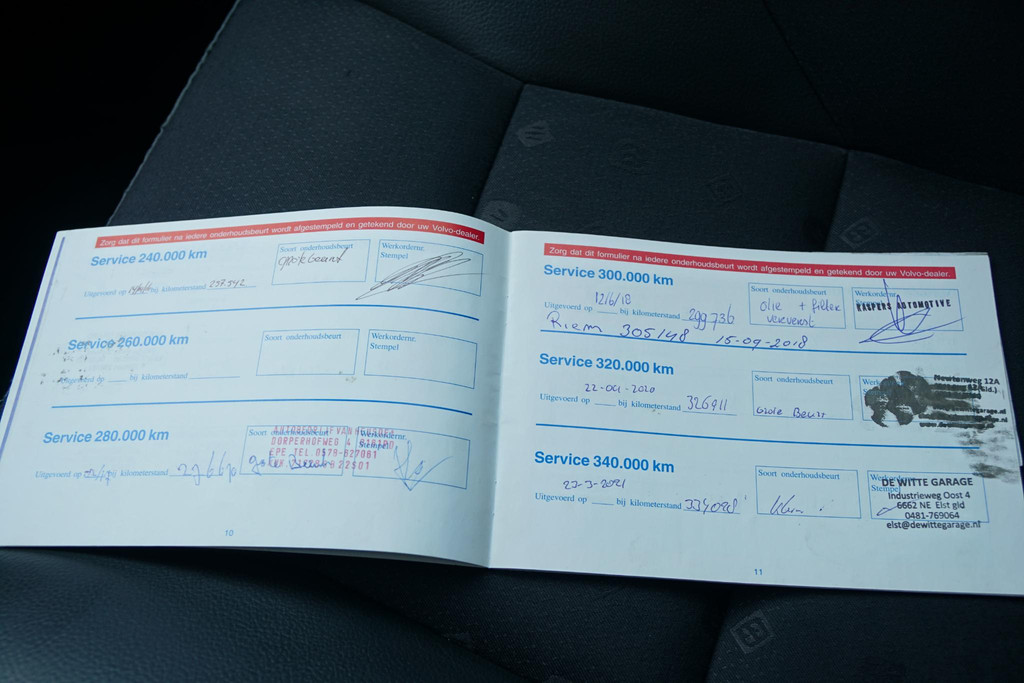 Zorg dat dit formulier na iedere onderhoudsbeurt wordt afgestempeld en getekend door uw Volvo-dealer.
Service 240.000 km
Soort onderhoudsbeurt
grote beurt
Werkordernr.
Stempel
Uitgevoerd op bij kilometerstand 237.342
Service 260.000 km
Soort onderhoudsbeurt
Werkordernr.
Stempel
Uitgevoerd op ____ bij kilometerstand
Service 280.000 km
Soort onderhoudsbeurt
Werkordernr.
Stempel
AUTOBEDRIJF VAN
DORPERHOFWEG 4
EPE TEL.0578-627081
Uitgevoerd op bij kilometerstand
10
Zorg dat dit formulier na iedere onderhoudsbeurt wordt afgestempeld en getekend door uw Volvo-dealer.
Service 300.000 km
12/6/18
Uitgevoerd op ____ bij kilometerstand 299736
Soort onderhoudsbeurt
olie + filter
ververst
Werkordernr.
KASPERS AUTOMOTIVE
Riem 305148 15-09-2018
Service 320.000 km
22-04-2020
Uitgevoerd op ____ bij kilometerstand 326911
Soort onderhoudsbeurt
Grote Beurt
Newtonweg 12A
Service 340.000 km
23-3-2021
Uitgevoerd op ____ bij kilometerstand 334028
Soort onderhoudsbeurt
Klein
Stempel
DE WITTE GARAGE
Industrieweg Oost 4
6662 NE Elst gld
0481-769064
elst@dewittegarage.nl
11